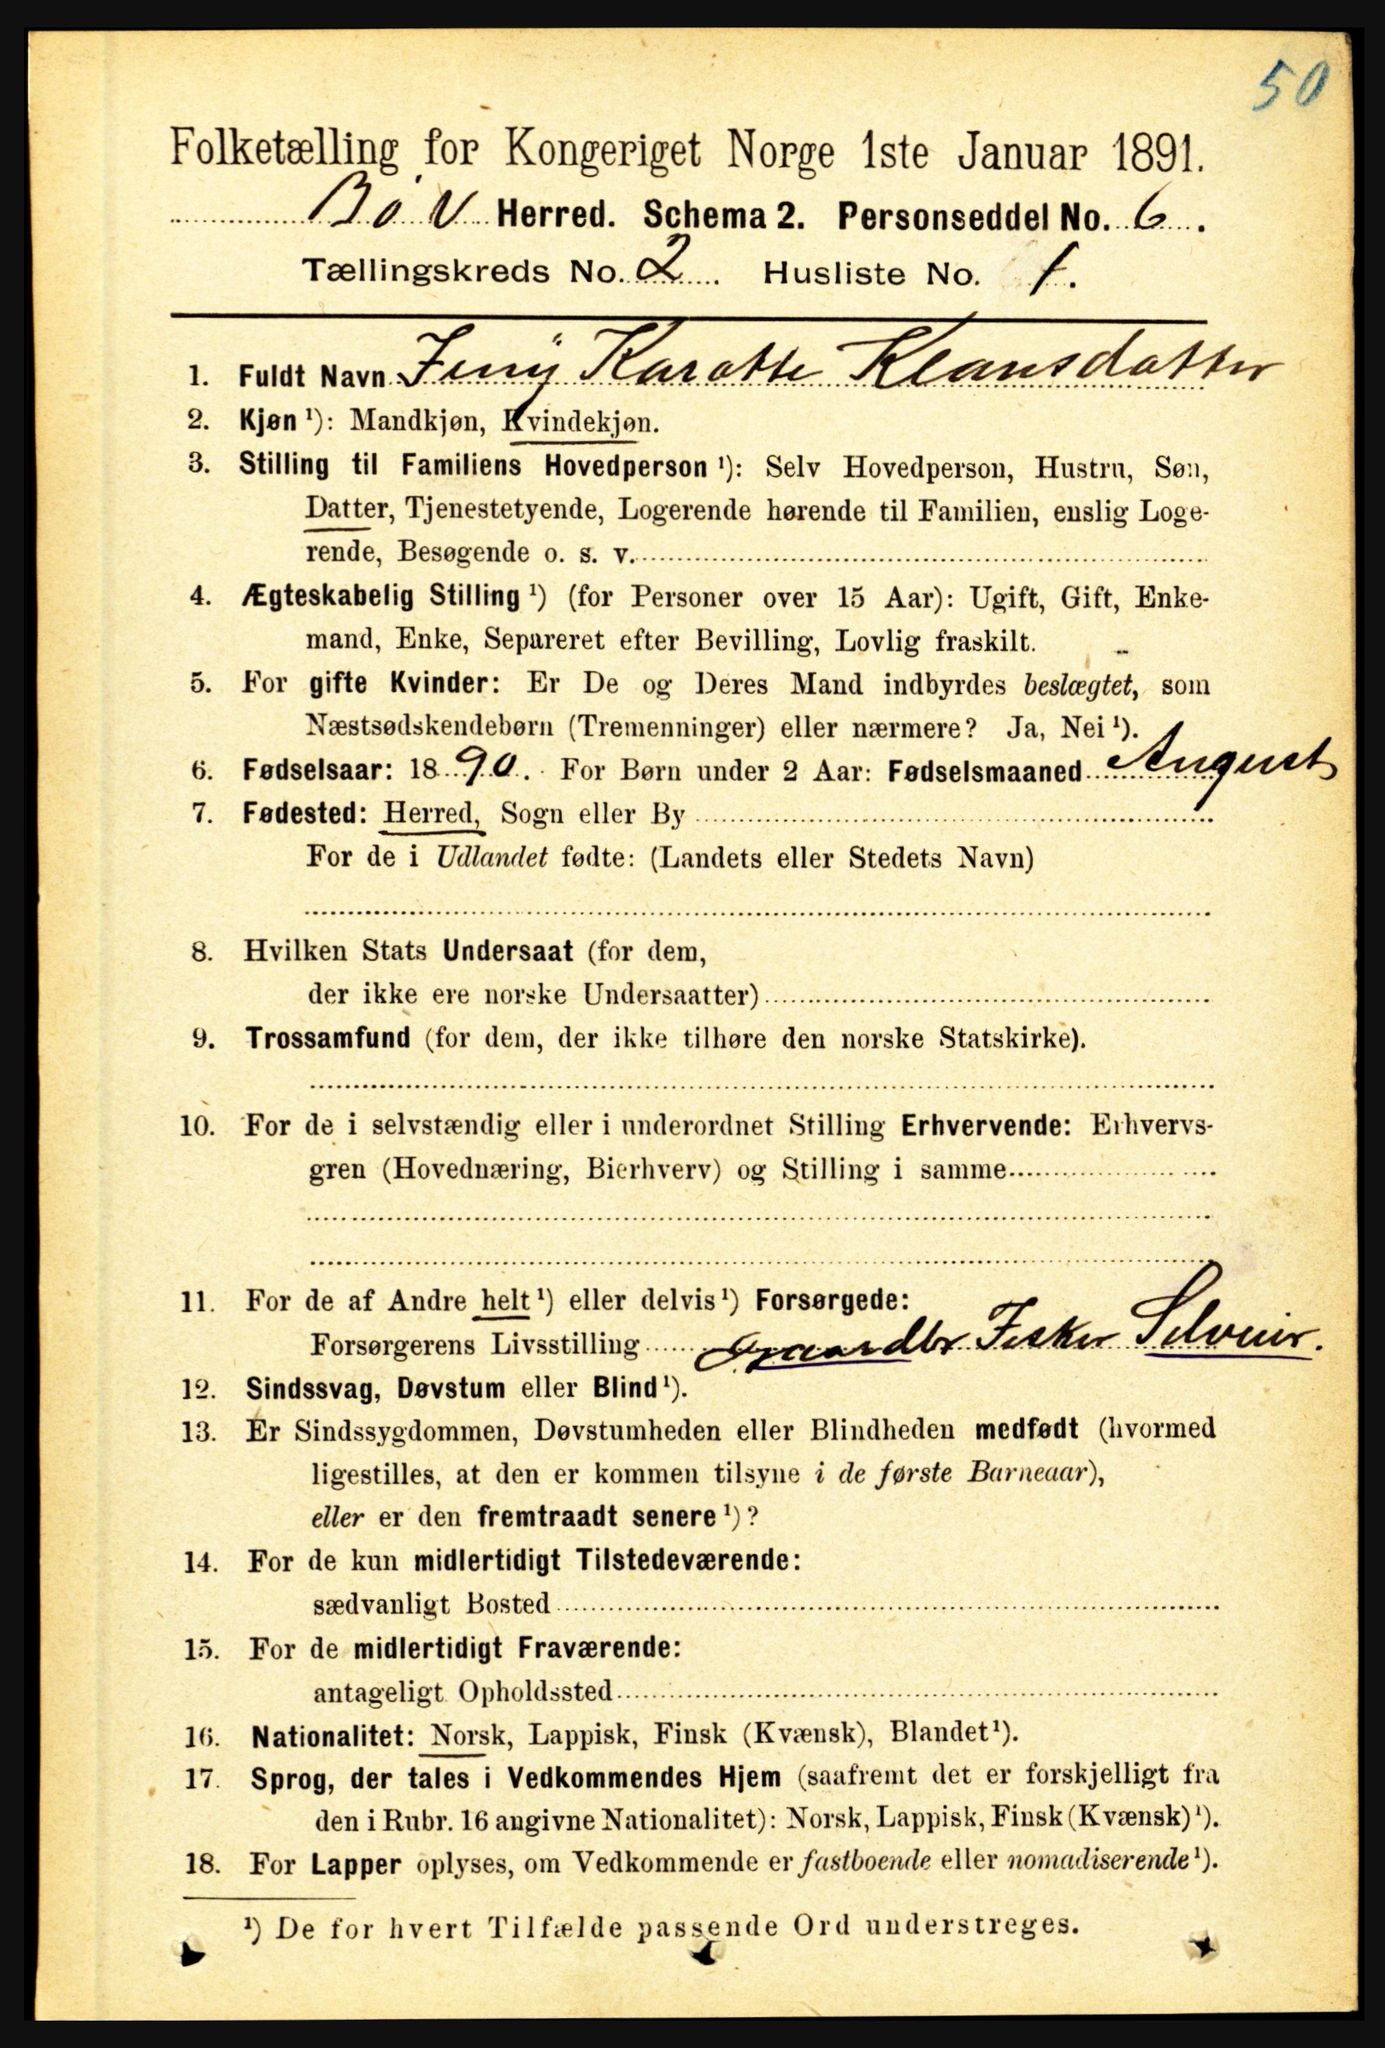 50
Folketælling for Kongeriget Norge 1ste Januar 1891.
Bø V Herred. Schema 2. Personseddel No. 6.
Tællingskreds No. 2. Husliste No. 1.
1. Fuldt Navn Jeny Karotte Klausdatter
2. Kjøn ¹): Mandkjøn, Kvindekjøn.
3. Stilling til Familiens Hovedperson ¹): Selv Hovedperson, Hustru, Søn,
Datter, Tjenestetyende, Logerende hørende til Familien, enslig Loge-
rende, Besøgende o. s. v.
4. Ægteskabelig Stilling ¹) (for Personer over 15 Aar): Ugift, Gift, Enke-
mand, Enke, Separeret efter Bevilling, Lovlig fraskilt.
5. For gifte Kvinder: Er De og Deres Mand indbyrdes beslægtet, som
Næstsødskendebørn (Tremenninger) eller nærmere? Ja, Nei ¹).
6. Fødselsaar: 1890. For Børn under 2 Aar: Fødselsmaaned August
7. Fødested: Herred, Sogn eller By
For de i Udlandet fødte: (Landets eller Stedets Navn)
8. Hvilken Stats Undersaat (for dem,
der ikke ere norske Undersaatter)
9. Trossamfund (for dem, der ikke tilhøre den norske Statskirke).
10. For de i selvstændig eller i underordnet Stilling Erhvervende: Erhvervs-
gren (Hovednæring, Bierhverv) og Stilling i samme
11. For de af Andre helt ¹) eller delvis ¹) Forsørgede:
Forsørgerens Livsstilling Gaardbr Fisker Selveier.
12. Sindssvag, Døvstum eller Blind ¹).
13. Er Sindssygdommen, Døvstumheden eller Blindheden medfødt (hvormed
ligestilles, at den er kommen tilsyne i de første Barneaar),
eller er den fremtraadt senere ¹)?
14. For de kun midlertidigt Tilstedeværende:
sædvanligt Bosted
15. For de midlertidigt Fraværende:
antageligt Opholdssted
16. Nationalitet: Norsk, Lappisk, Finsk (Kvænsk), Blandet ¹).
17. Sprog, der tales i Vedkommendes Hjem (saafremt det er forskjelligt fra
den i Rubr. 16 angivne Nationalitet): Norsk, Lappisk, Finsk (Kvænsk) ¹).
18. For Lapper oplyses, om Vedkommende er fastboende eller nomadiserende ¹).
¹) De for hvert Tilfælde passende Ord understreges.